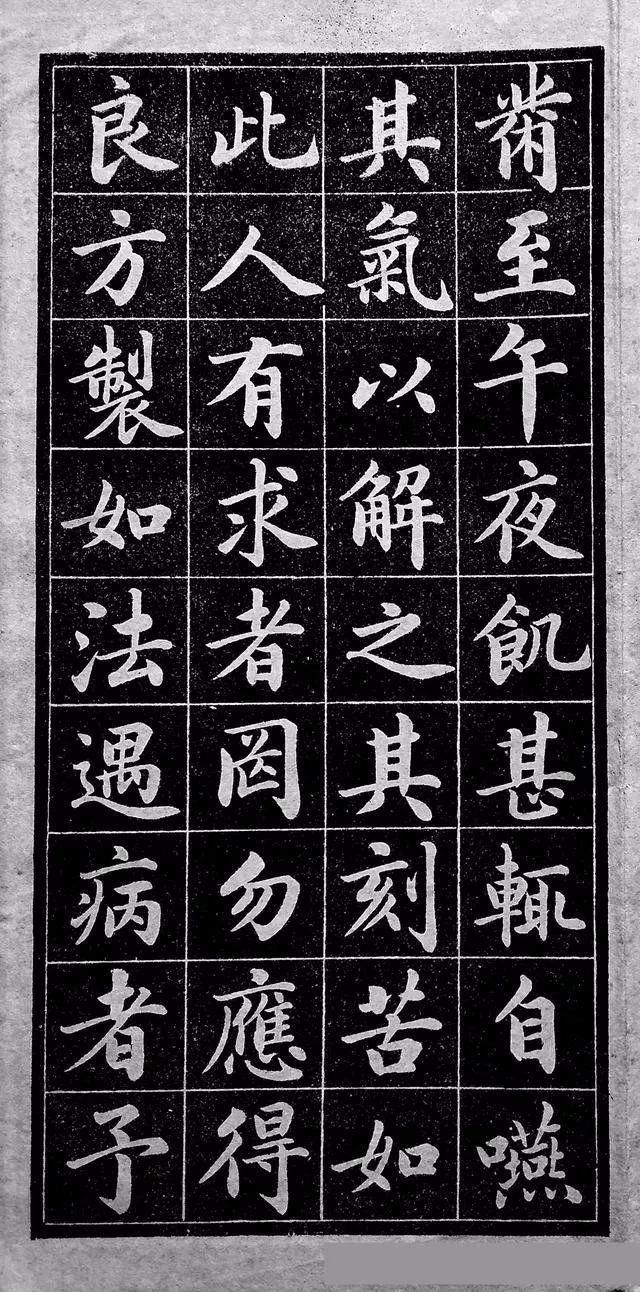 黹至午夜飢甚輒自嚥
其氣以解之其刻苦如
此人有求者罔勿應得
良方製如法遇病者予